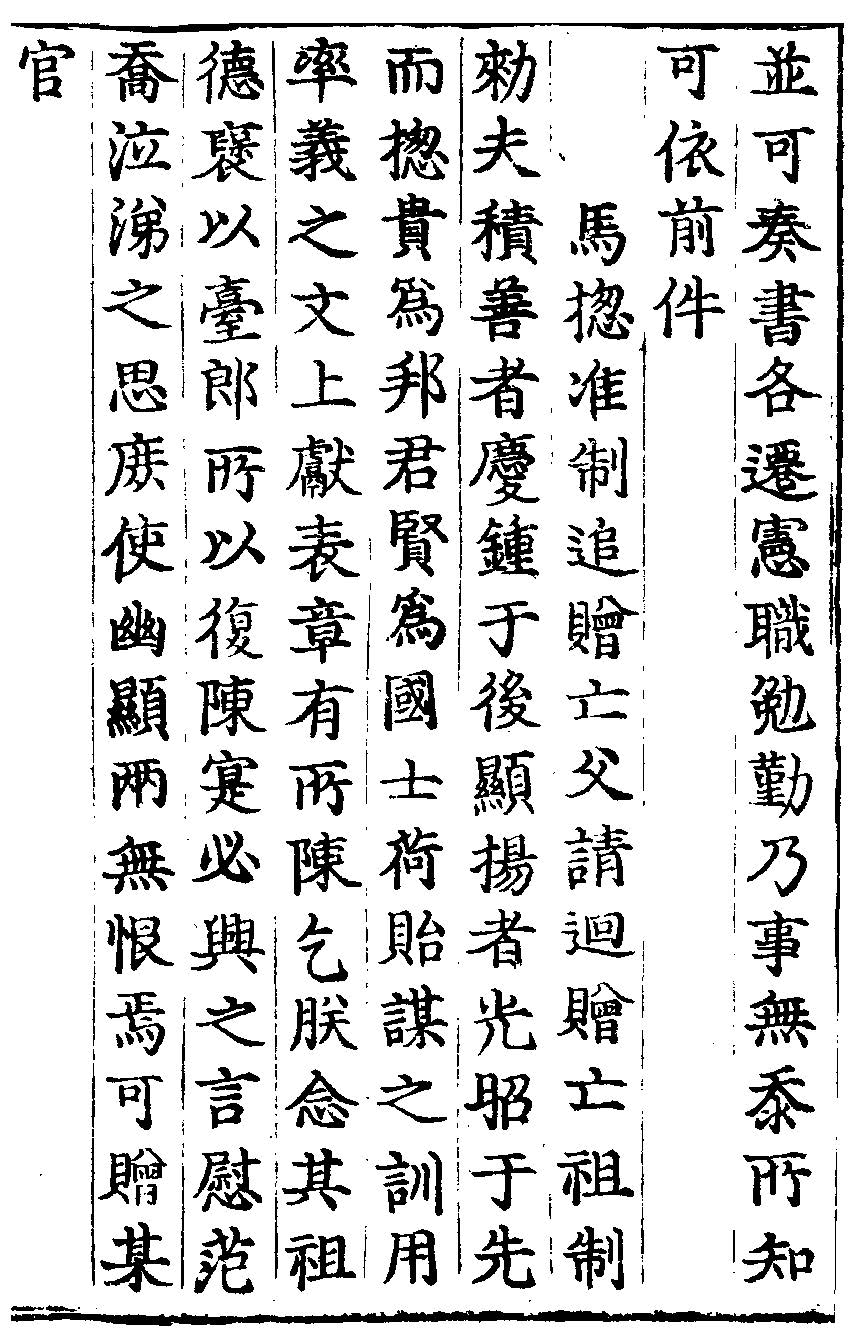 並可奏書各遷憲職勉勤乃事無忝所知
可依前件
馬揔准制追贈亡父請迴贈亡祖制
勑夫積善者慶鍾于後顯揚者光昭于先
而揔貴爲邦君賢爲國士荷貽謀之訓用
率義之文上獻表章有所陳乞朕念其祖
德褒以臺郎所以復陳寔必興之言慰范
喬泣涕之思庻使幽顯兩無恨焉可贈某
官